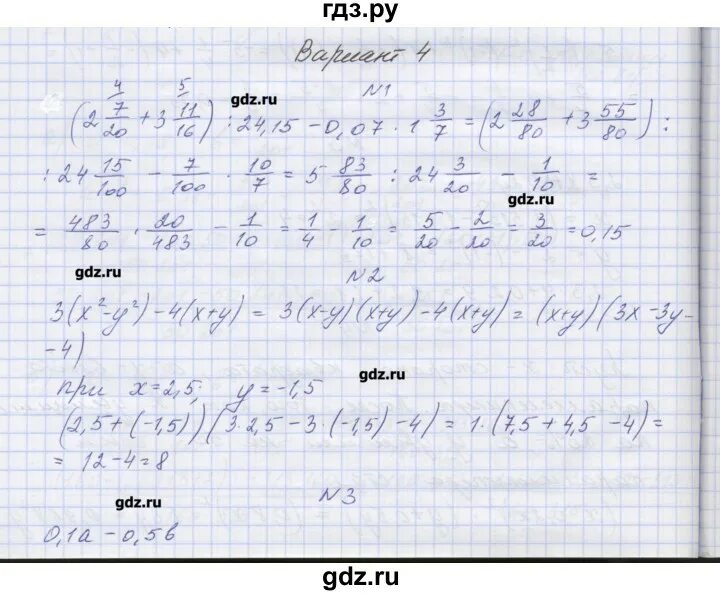 гдз.ру
Вариант 4
№1
(2 7/20 + 3 11/16) : 24,15 - 0,07 · 1 3/7 = (2 28/80 + 3 55/80) :
4 5
gdz.ru
: 24 15/100 - 7/100 · 10/7 = 5 83/80 : 24 3/20 - 1/10 =
gdz.ru
= 483/80 · 20/483 - 1/10 = 1/4 - 1/10 = 5/20 - 2/20 = 3/20 = 0,15
gdz.ru
№2
3(x²-y²) - 4(x+y) = 3(x-y)(x+y) - 4(x+y) = (x+y)(3x-3y-
-4)
gdz.ru
при x=2,5; y=-1,5
(2,5+(-1,5))(3·2,5-3·(-1,5)-4) = 1·(7,5+4,5-4) =
= 12-4=8
gdz.ru
№3
0,1a - 0,5b
gdz.ru